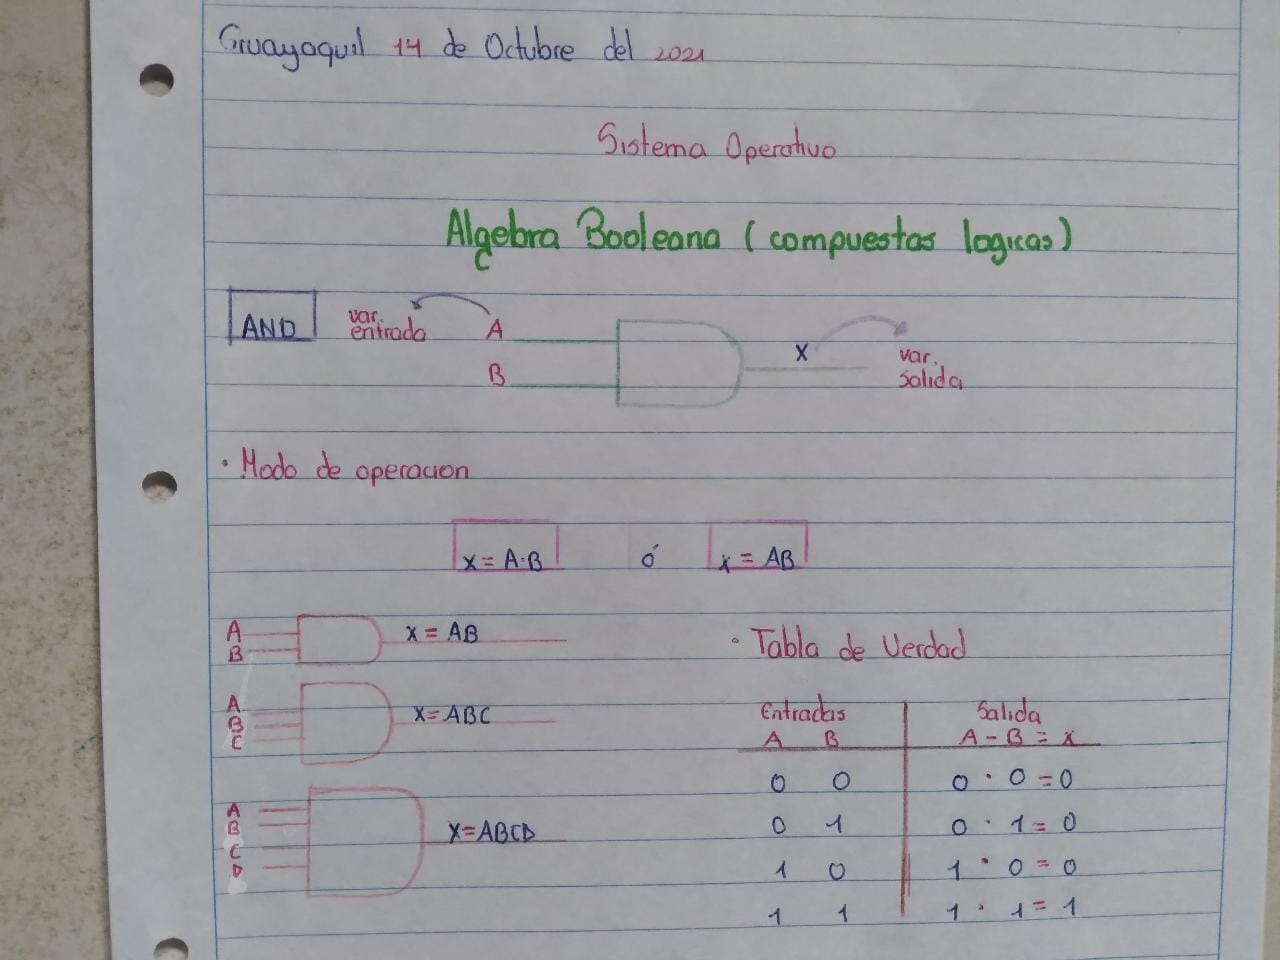 Guayaquil 14 de Octubre del 2021
Sistema Operativo
Algebra Booleana (compuestas logicas)
AND
var.
entrada
A
B
x
var.
salida
• Modo de operacion
x = A·B ó x = AB
A
B
x = AB
A
B
C
x = ABC
A
B
C
D
x = ABCD
• Tabla de Verdad
Entradas Salida
A B A - B = x
0 0 0 · 0 = 0
0 1 0 · 1 = 0
1 0 1 · 0 = 0
1 1 1 · 1 = 1